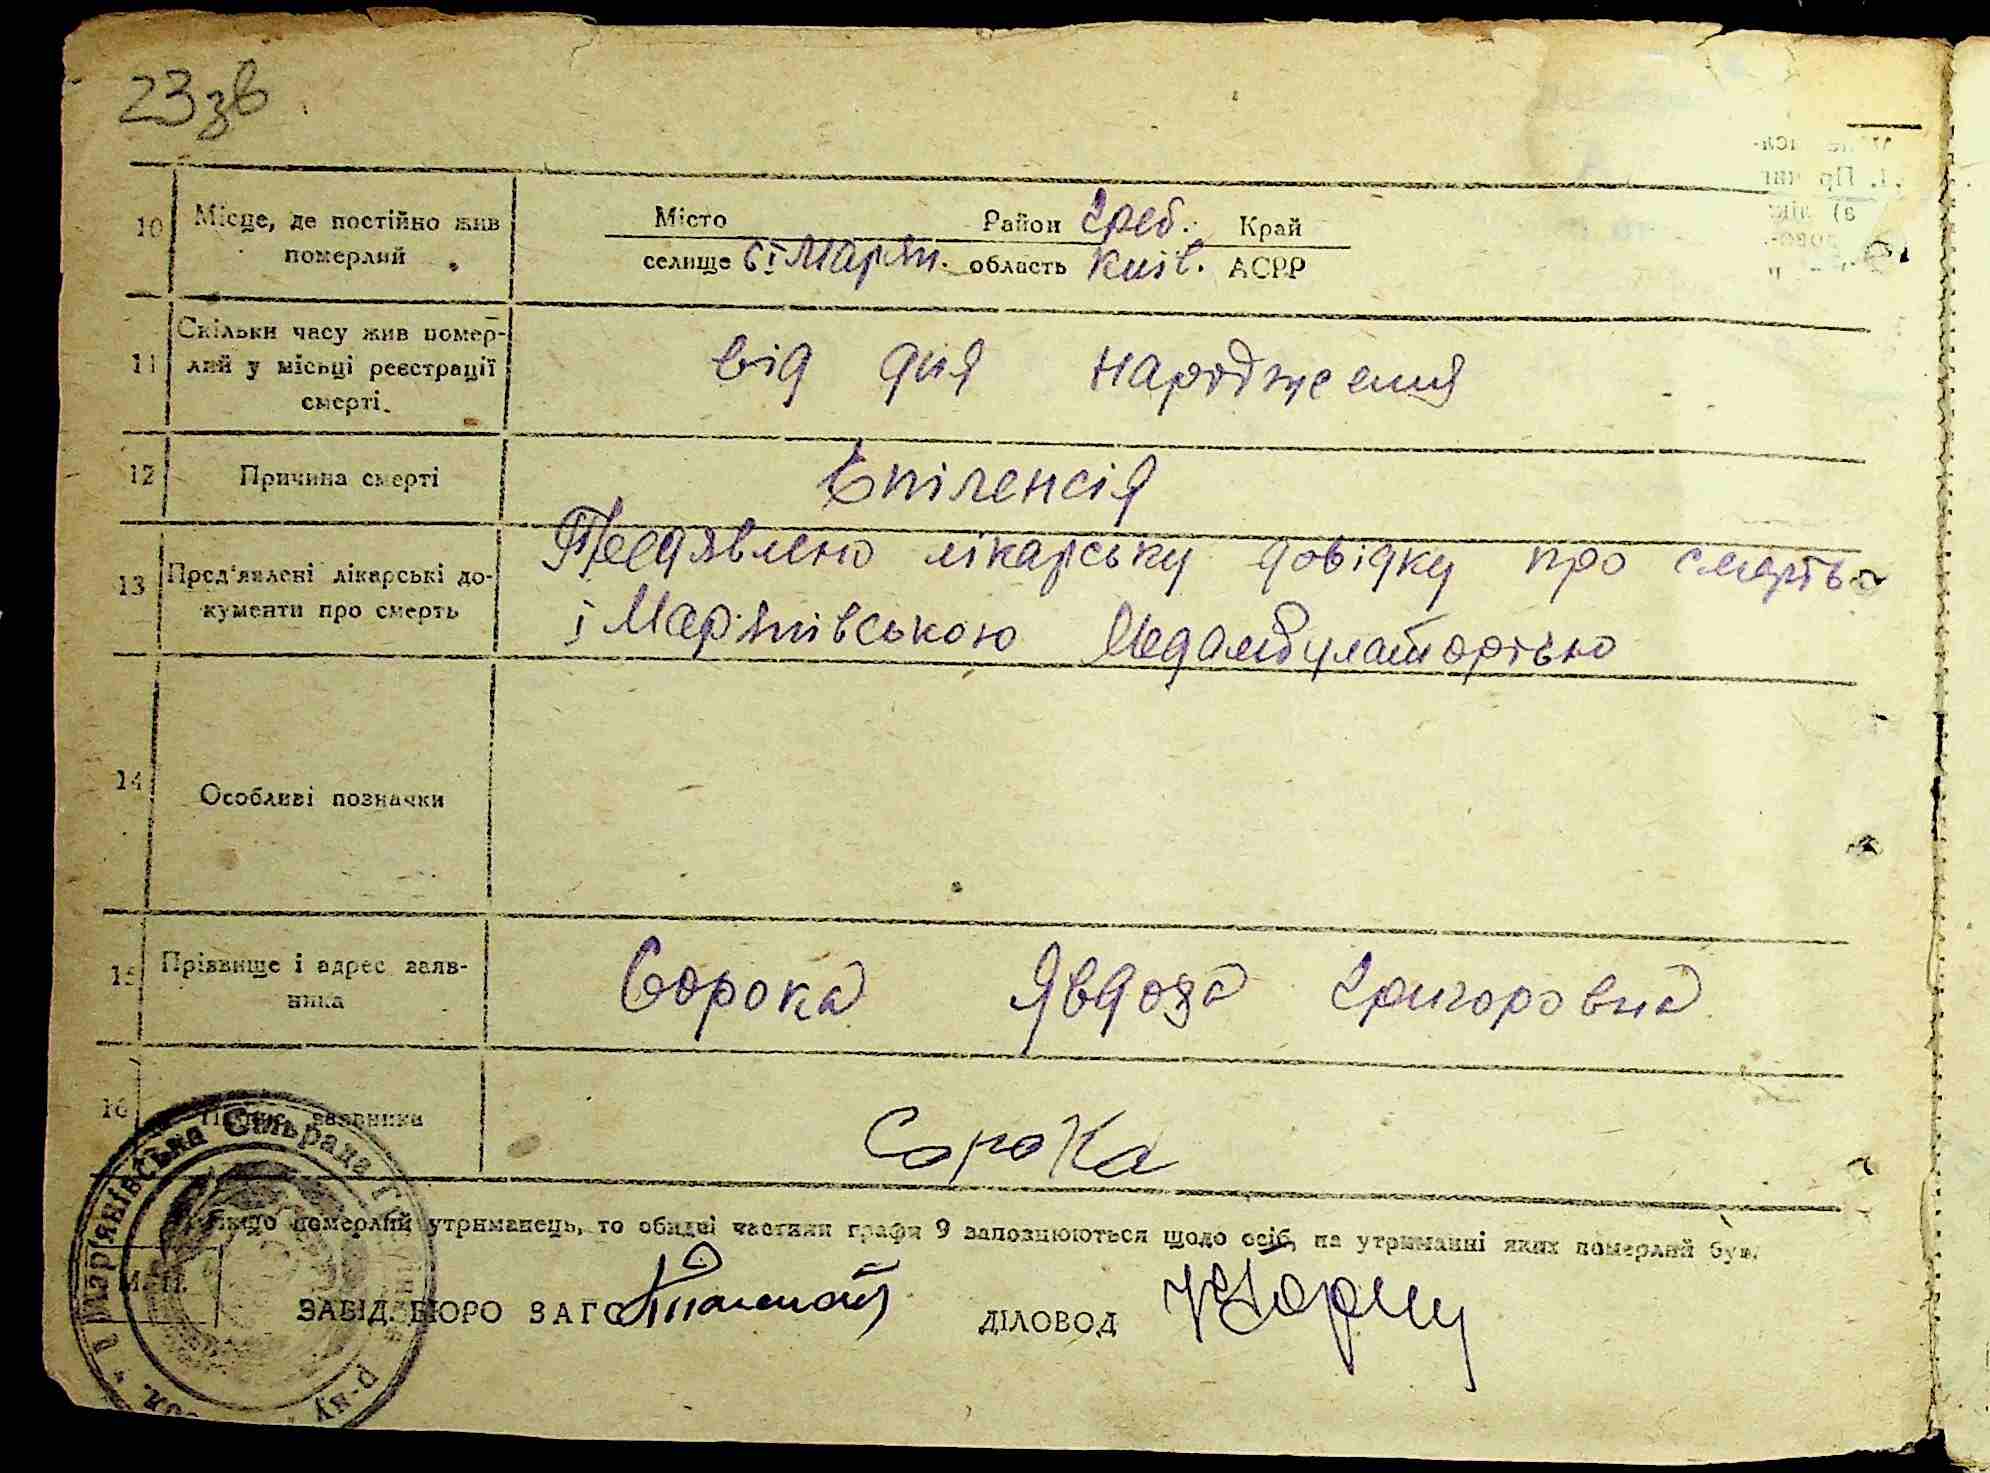 23 зв
10 Місце, де постійно жив Місто Район Греб. Край
померлий селище с І Мар'ян. область Київ. АСРР
Скільки часу жив помер-
11 лий у місьці реєстрації від дня народження
смерті.
12 Причина смерті Епіленсія
13 Пред'явлені лікарські до- Предявлено лікарську довідку про смерть
кументи про смерть І Мар'янівською Медамбулаторією
14 Особливі позначки
15 Прізвище і адрес заяв- Сорока Явдоха Григоровна
ника
16 Підпис заявника Сорока
Якщо померлий утриманець, то обидві частини графи 9 заповнюються щодо осіб, на утриманні яких померлий був.
М. П.
ЗАВІД. БЮРО ЗАГС ДІЛОВОД
І Мар'янівська Сільрада р-ну